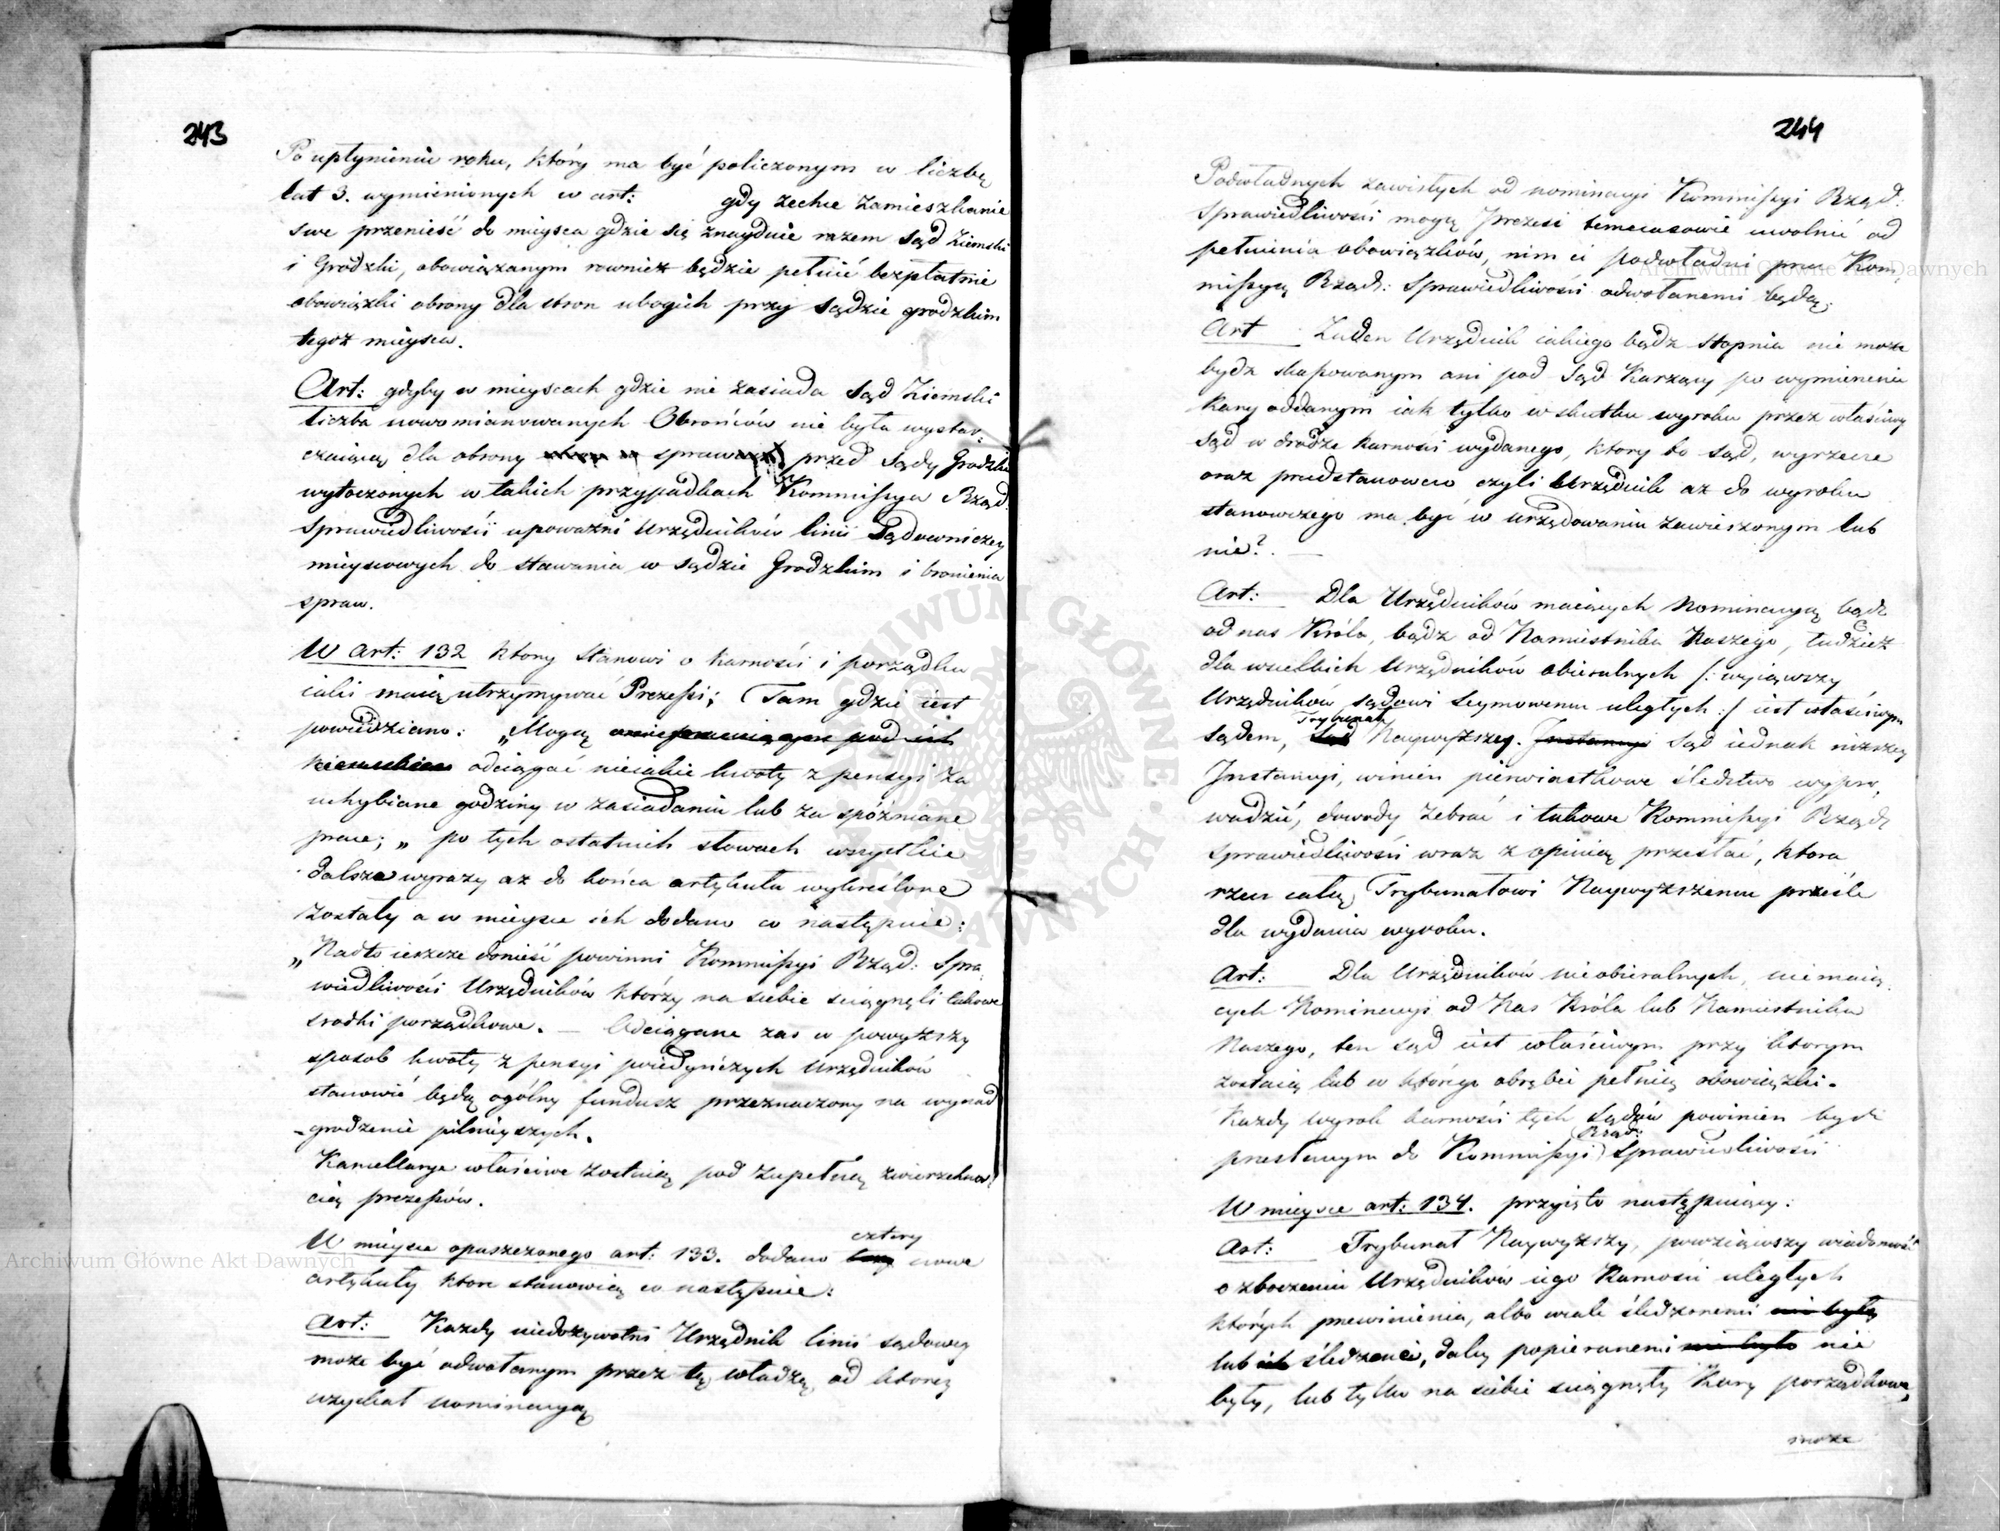 243
Po upłynieniu roku, który ma być policzonym w liczbę
lat 3. wymienionych w art: gdy zechce zamieszkanie
swe przenieść do mieysca gdzie się znayduie razem Sąd Ziemski
i Grodzki, obowiązanym rownież będzie pełnić bezpłatnie
obowiązki obrony dla stron ubogich przy Sądzie grodzkim
tegoż mieysca.
Art: gdyby w mieyscach gdzie nie zasiada Sąd Ziemski
liczba nowomianowanych Obrońców nie była wystar,
czaiącą dla obrony spraw przed Sądy Grodzkie
wytoczonych w takich przypadkach Kommissya Rząd:
Sprawiedliwości upoważni Urzędników linii Sądowniczey
mieyscowych do stawania w Sądzie Grodzkim i bronienia
spraw.
W art: 132 ktory stanowi o karności i porządku
iakie maią utrzymywać Prezessi; Tam gdzie iest
powiedziano: „Mogą pod ich
odciągać nieiakie kwoty z pensyi za
uchybiane godziny w zasiadaniu lub za spóźniane
prace; „ po tych ostatnich słowach wszystkie
dalsze wyrazy aż do końca artykułu wykreślone
zostały a w mieysce ich dodano co następuie:
„Nadto ieszcze donieść powinni Kommissyi Rząd: Spra,
wiedliwości Urzędników którzy na siebie ściągnęli takowe
srodki porządkowe. — Odciągane zaś w powyższy
sposób kwoty z pensyi poiedyńczych Urzędników
stanowić będą ogólny fundusz przeznaczony na wynad
-grodzenie pilnieyszych.
Kancellarye właściwe zostaią pod zupełną zwierzchnoś
cią prezessów.
cztery
W mieysce opuszczonego art: 133. dodano trzy nowe
artykuły ktore stanowią co następuie:
Art: Każdy niedożywotni Urzędnik linii sądowey
może być odwołanym przez tę władzę, od ktorey
uzyskał nominacyą
244
Podwładnych zawisłych od nominacyi Kommissyi Rząd:
Sprawiedliwości mogą prezesi temczasowie uwolnić od
pełnienia obowiązków, nim ci podwładni przez Kom,
missyą Rząd: Sprawiedliwości odwołanemi będą.
Art Żaden Urzędnik iakiego bądź stopnia nie może
bydź skasowanym ani pod Sąd Karzący po wymienenie
kary oddanym iak tylko w skutku wyroku przez właściwy
Sąd w drodze karności wydanego, ktory to Sąd, wyrzecze
oraz przedstanowczo czyli Urzędnik aż do wyroku
stanowczego ma być w urzędowaniu zawieszonym lub
nie? —
Art: Dla Urzędników maiących Nominacyą bądź
od nas Króla, bądź od Namiestnika Naszego, tudzież
dla wszelkich Urzędników obieralnych /: wyiąwszy
Urzędników sądowi Seymowemu uległych :/ iest właściwym
Trybunał
sądem, Sąd Naywyższey. Instancyi Sąd iednak niższey
Instancyi, winien pierwiastkowe śledztwo wypro,
wadzić, dowody zebrać i takowe Kommissyi Rząd:
Sprawiedliwości wraz z opinią przesłać, ktora
rzecz całą Trybunałowi Naywyższemu prześle
dla wydania wyroku.
Art: Dla Urzędników nieobieralnych, nie maią,
cych Nominacyi od Nas Króla lub Namiestnika
Naszego, ten sąd iest właściwym przy ktorym
zostaią lub w którego obrębie pełnią obowiązki.
Każdy wyrok karności tych Sądów powinien bydź
Rząd:
przesłanym do Kommissyi Sprawiedliwości
W mieysce art: 134. przyięto następuiący:
Art: Trybunał Naywyższy, powziąwszy wiadomość
o zboczeniu Urzędników iego Karności uległych
których przewinienia, albo wcale śledzonemi nie były
lub ich śledzenie, daley popieranemi nie było nie
były, lub tylko na siebie ściągnęły Karę porządkową,
może
Archiwum Główne Akt Dawnych
Archiwum Główne Akt Dawnych
ARCHIWUM GŁÓWNE AKT DAWNYCH